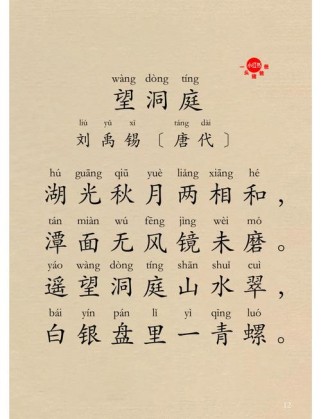 wàng dòng tíng
望洞庭
liú yǔ xī táng dài
刘禹锡〔唐代〕
hú guāng qiū yuè liǎng xiāng hé
湖光秋月两相和，
tán miàn wú fēng jìng wèi mó
潭面无风镜未磨。
yáo wàng dòng tíng shān shuǐ cuì
遥望洞庭山水翠，
bái yín pán lǐ yì qīng luó
白银盘里一青螺。
13